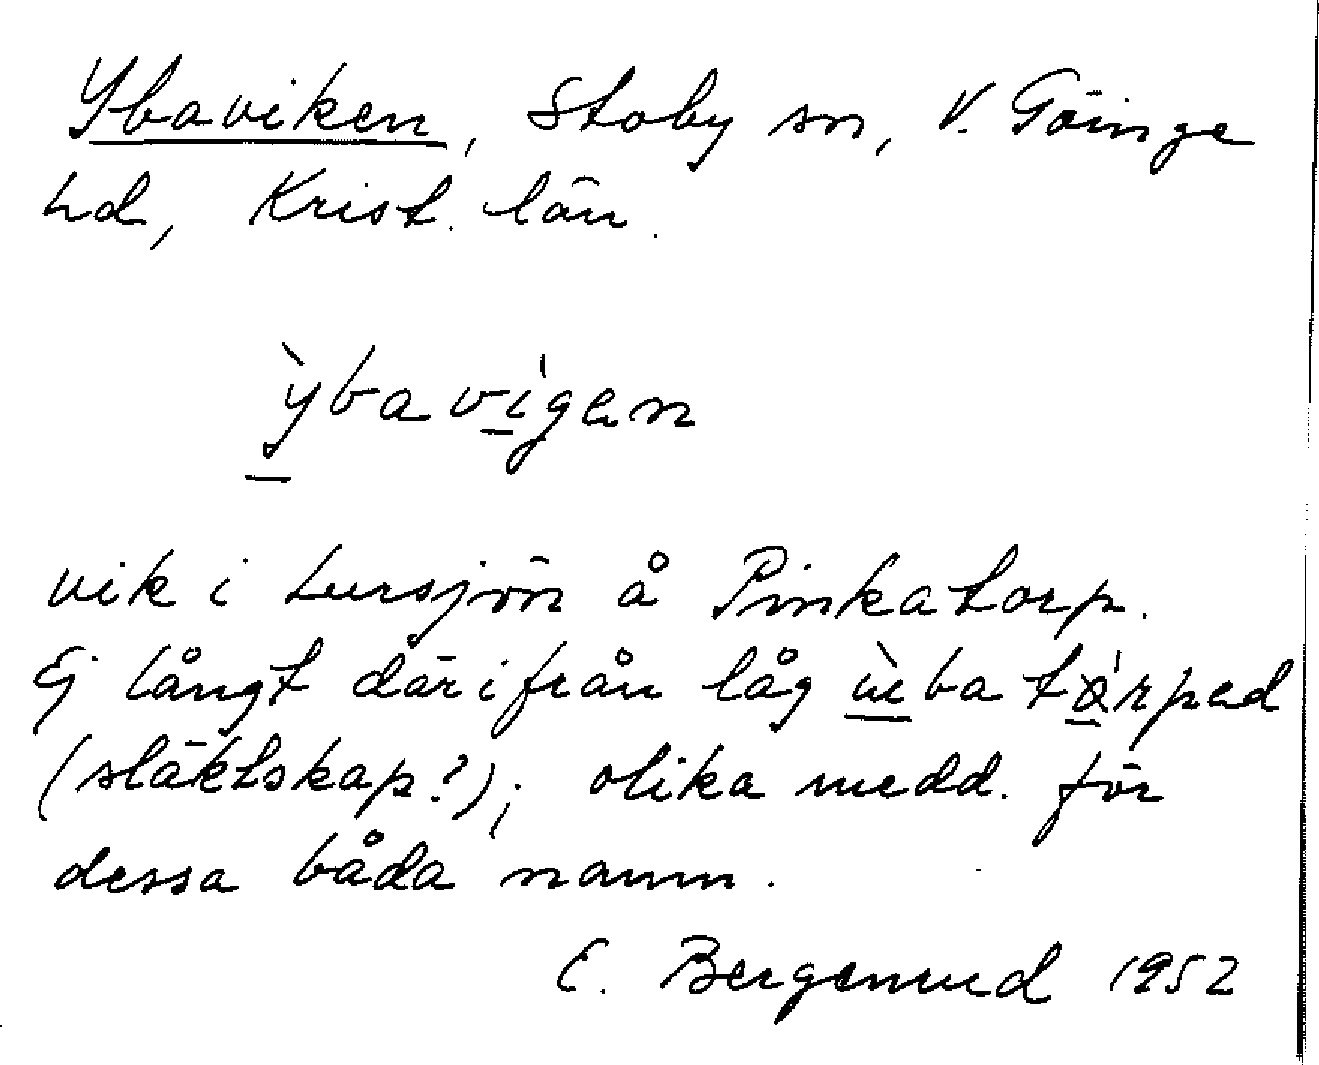 Ybaviken, Stoby sn, V. Göinge
hd, Krist. län.
ỳbavi̍gen
vik i Lursjön å Pinkatorp.
Ej långt därifrån låg ùba tårped
(släktskap?); olika medd. för
dessa båda namn.
E. Bergenrud 1952